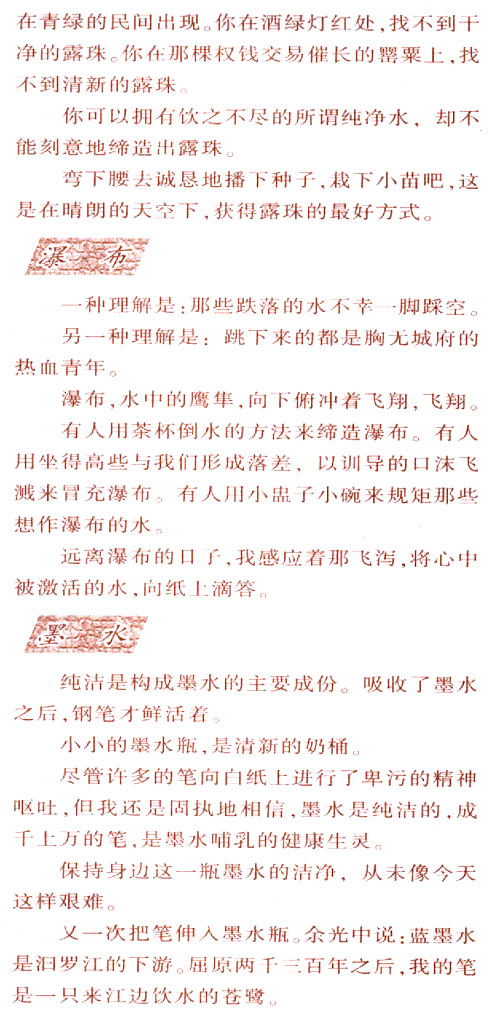 在青绿的民间出现。你在酒绿灯红处,找不到干
净的露珠。你在那棵权钱交易催长的罂粟上,找
不到清新的露珠。
你可以拥有饮之不尽的所谓纯净水,却不
能刻意地缔造出露珠。
弯下腰去诚恳地播下种子,栽下小苗吧,这
是在晴朗的天空下,获得露珠的最好方式。
瀑布
一种理解是:那些跌落的水不幸一脚踩空。
另一种理解是:跳下来的都是胸无城府的
热血青年。
瀑布,水中的鹰隼,向下俯冲着飞翔,飞翔。
有人用茶杯倒水的方法来缔造瀑布。有人
用坐得高些与我们形成落差,以训导的口沫飞
溅来冒充瀑布。有人用小盅子小碗来规矩那些
想作瀑布的水。
远离瀑布的日子,我感应着那飞泻,将心中
被激活的水,向纸上滴答。
墨水
纯洁是构成墨水的主要成份。吸收了墨水
之后,钢笔才鲜活着。
小小的墨水瓶,是清新的奶桶。
尽管许多的笔向白纸上进行了卑污的精神
呕吐,但我还是固执地相信,墨水是纯洁的,成
千上万的笔,是墨水哺乳的健康生灵。
保持身边这一瓶墨水的洁净,从未像今天
这样艰难。
又一次把笔伸入墨水瓶。余光中说:蓝墨水
是汨罗江的下游。屈原两千三百年之后,我的笔
是一只来江边饮水的苍鹭。